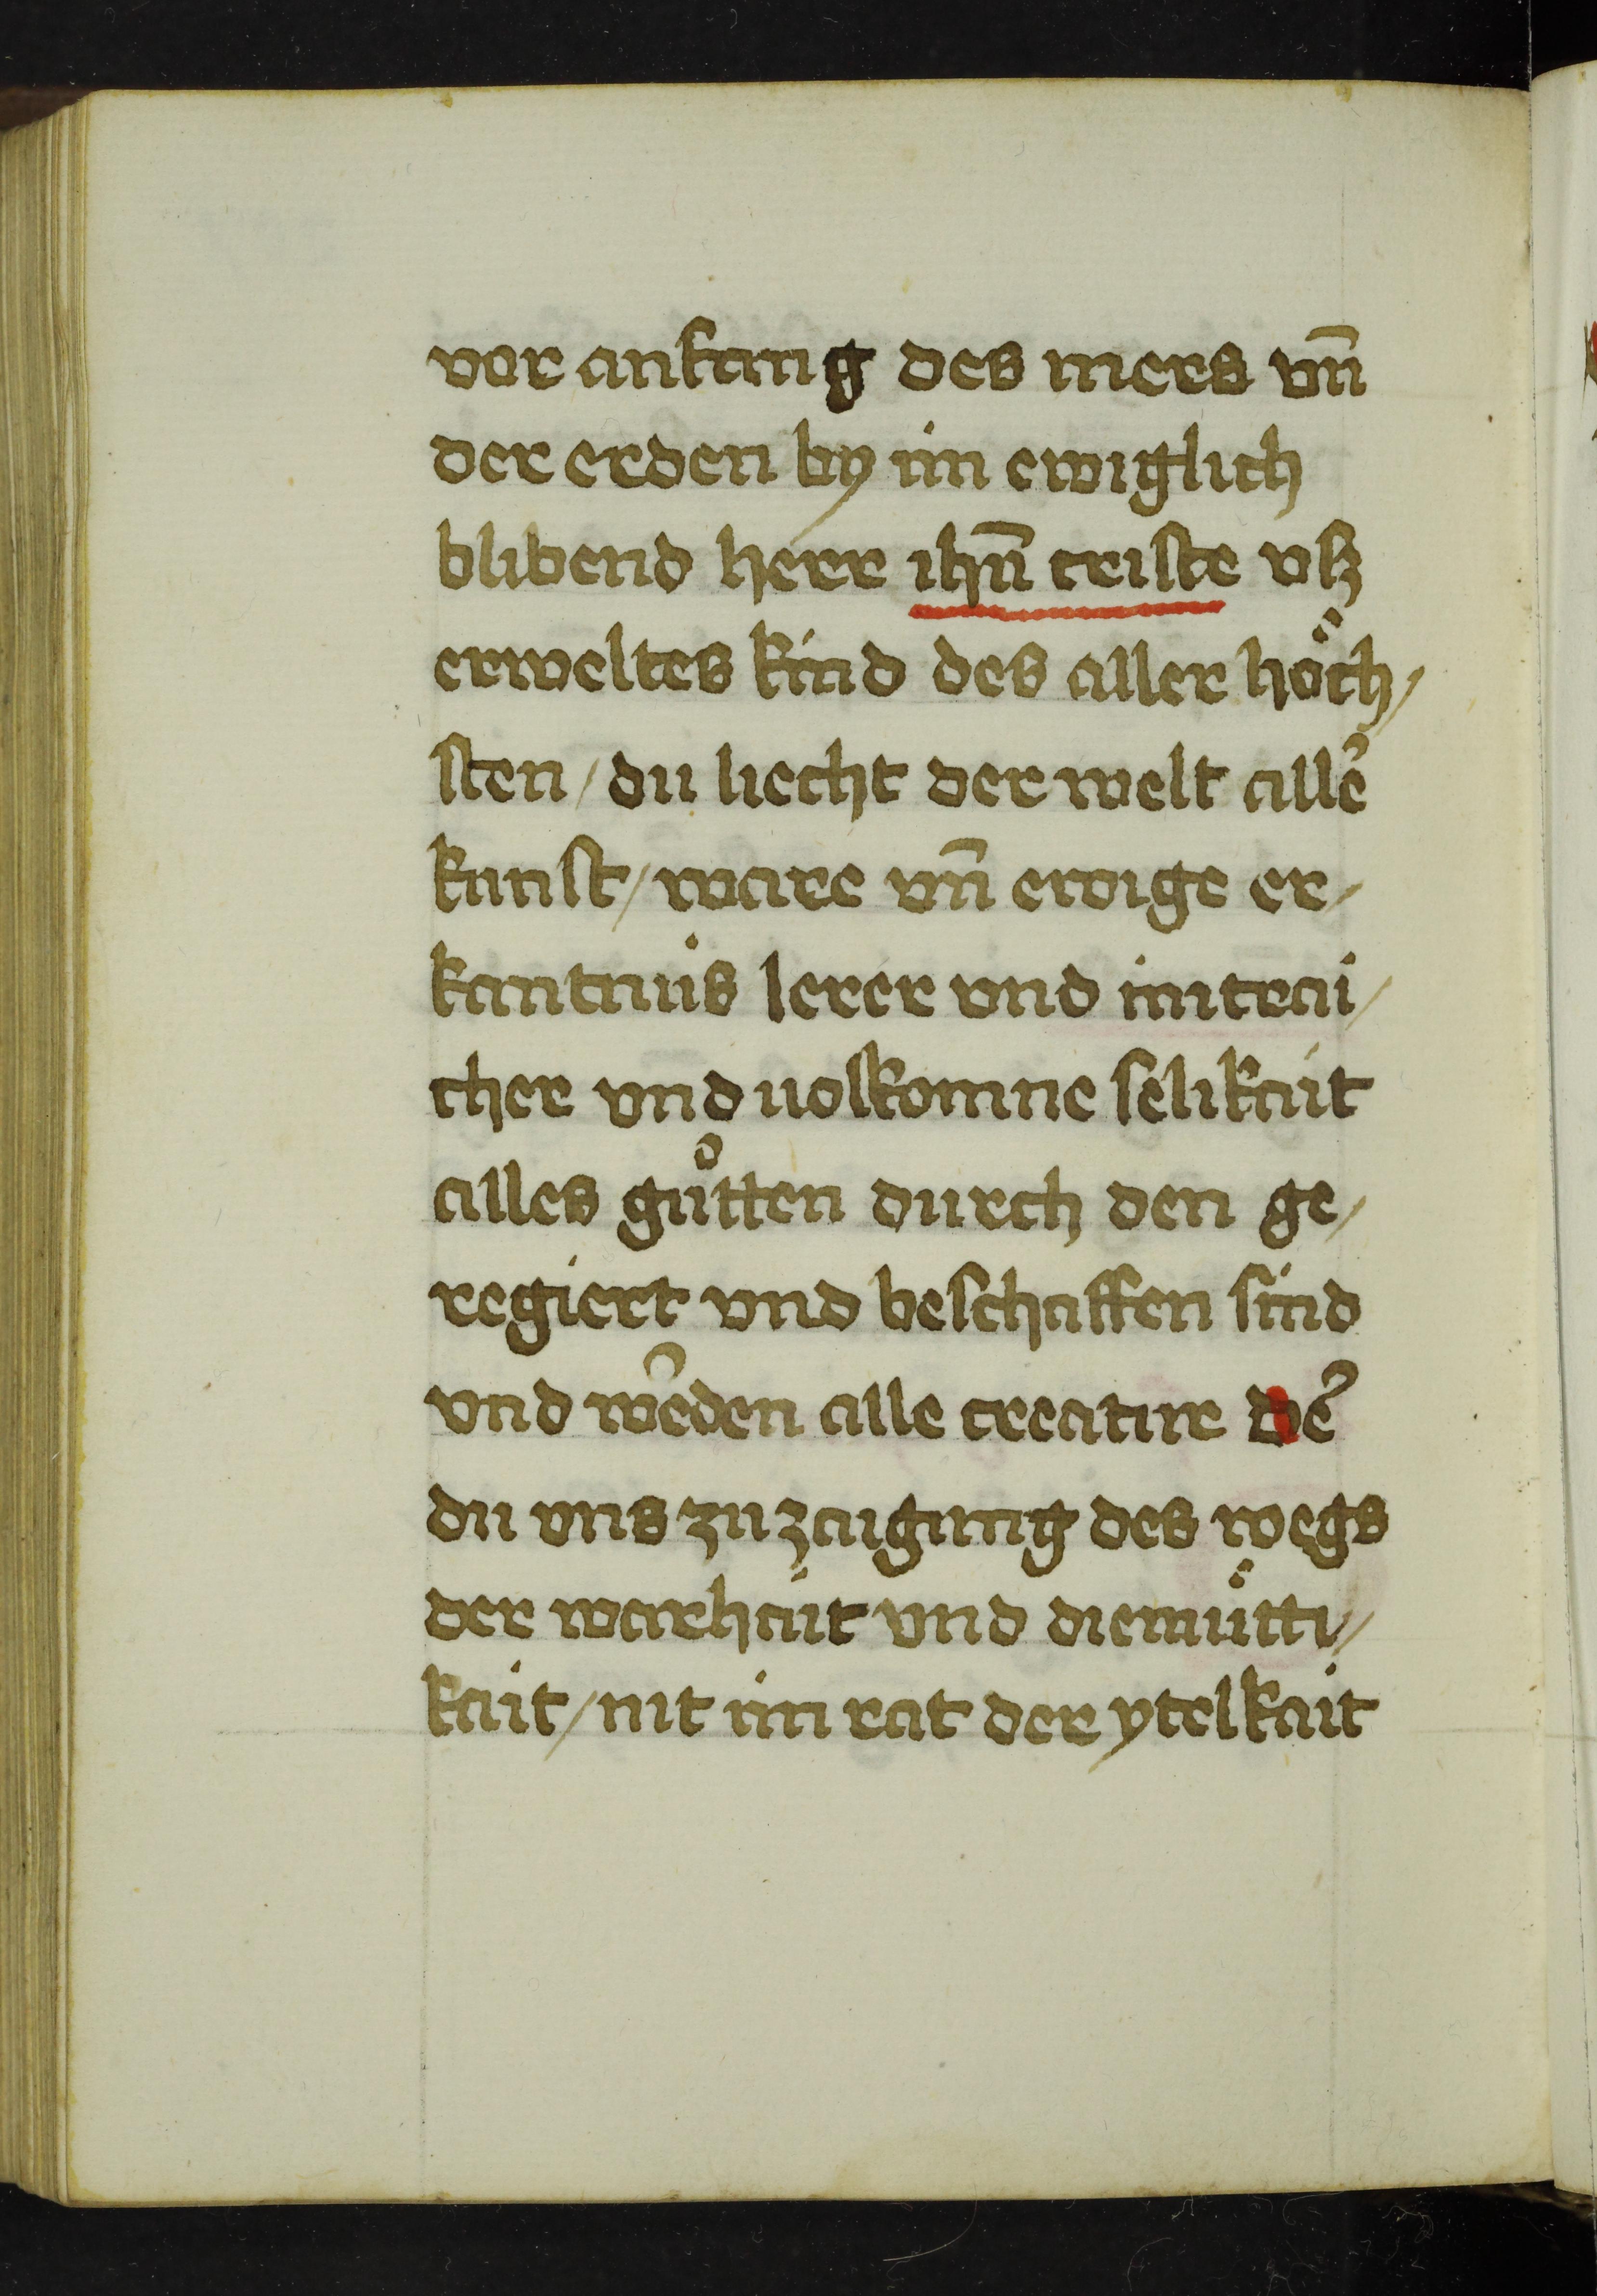 vor anfang des mers vn̄
der erden by im ewiglich
blibend herr ihū criste vß
erweltes kind des aller höch/
sten / du liecht der welt allē
kunst / ware vn̄ ewige er/
kantnus lerer vnd intrai/
cher vnd uolkomne selikait
alles gůtten durch den ge/
regiert vnd beschaffen sind
vnd wēden alle creatur Dē
du vns zu zaigung des wegs
der warhait vnd diemütti/
kait / nit im rat der ytelkait